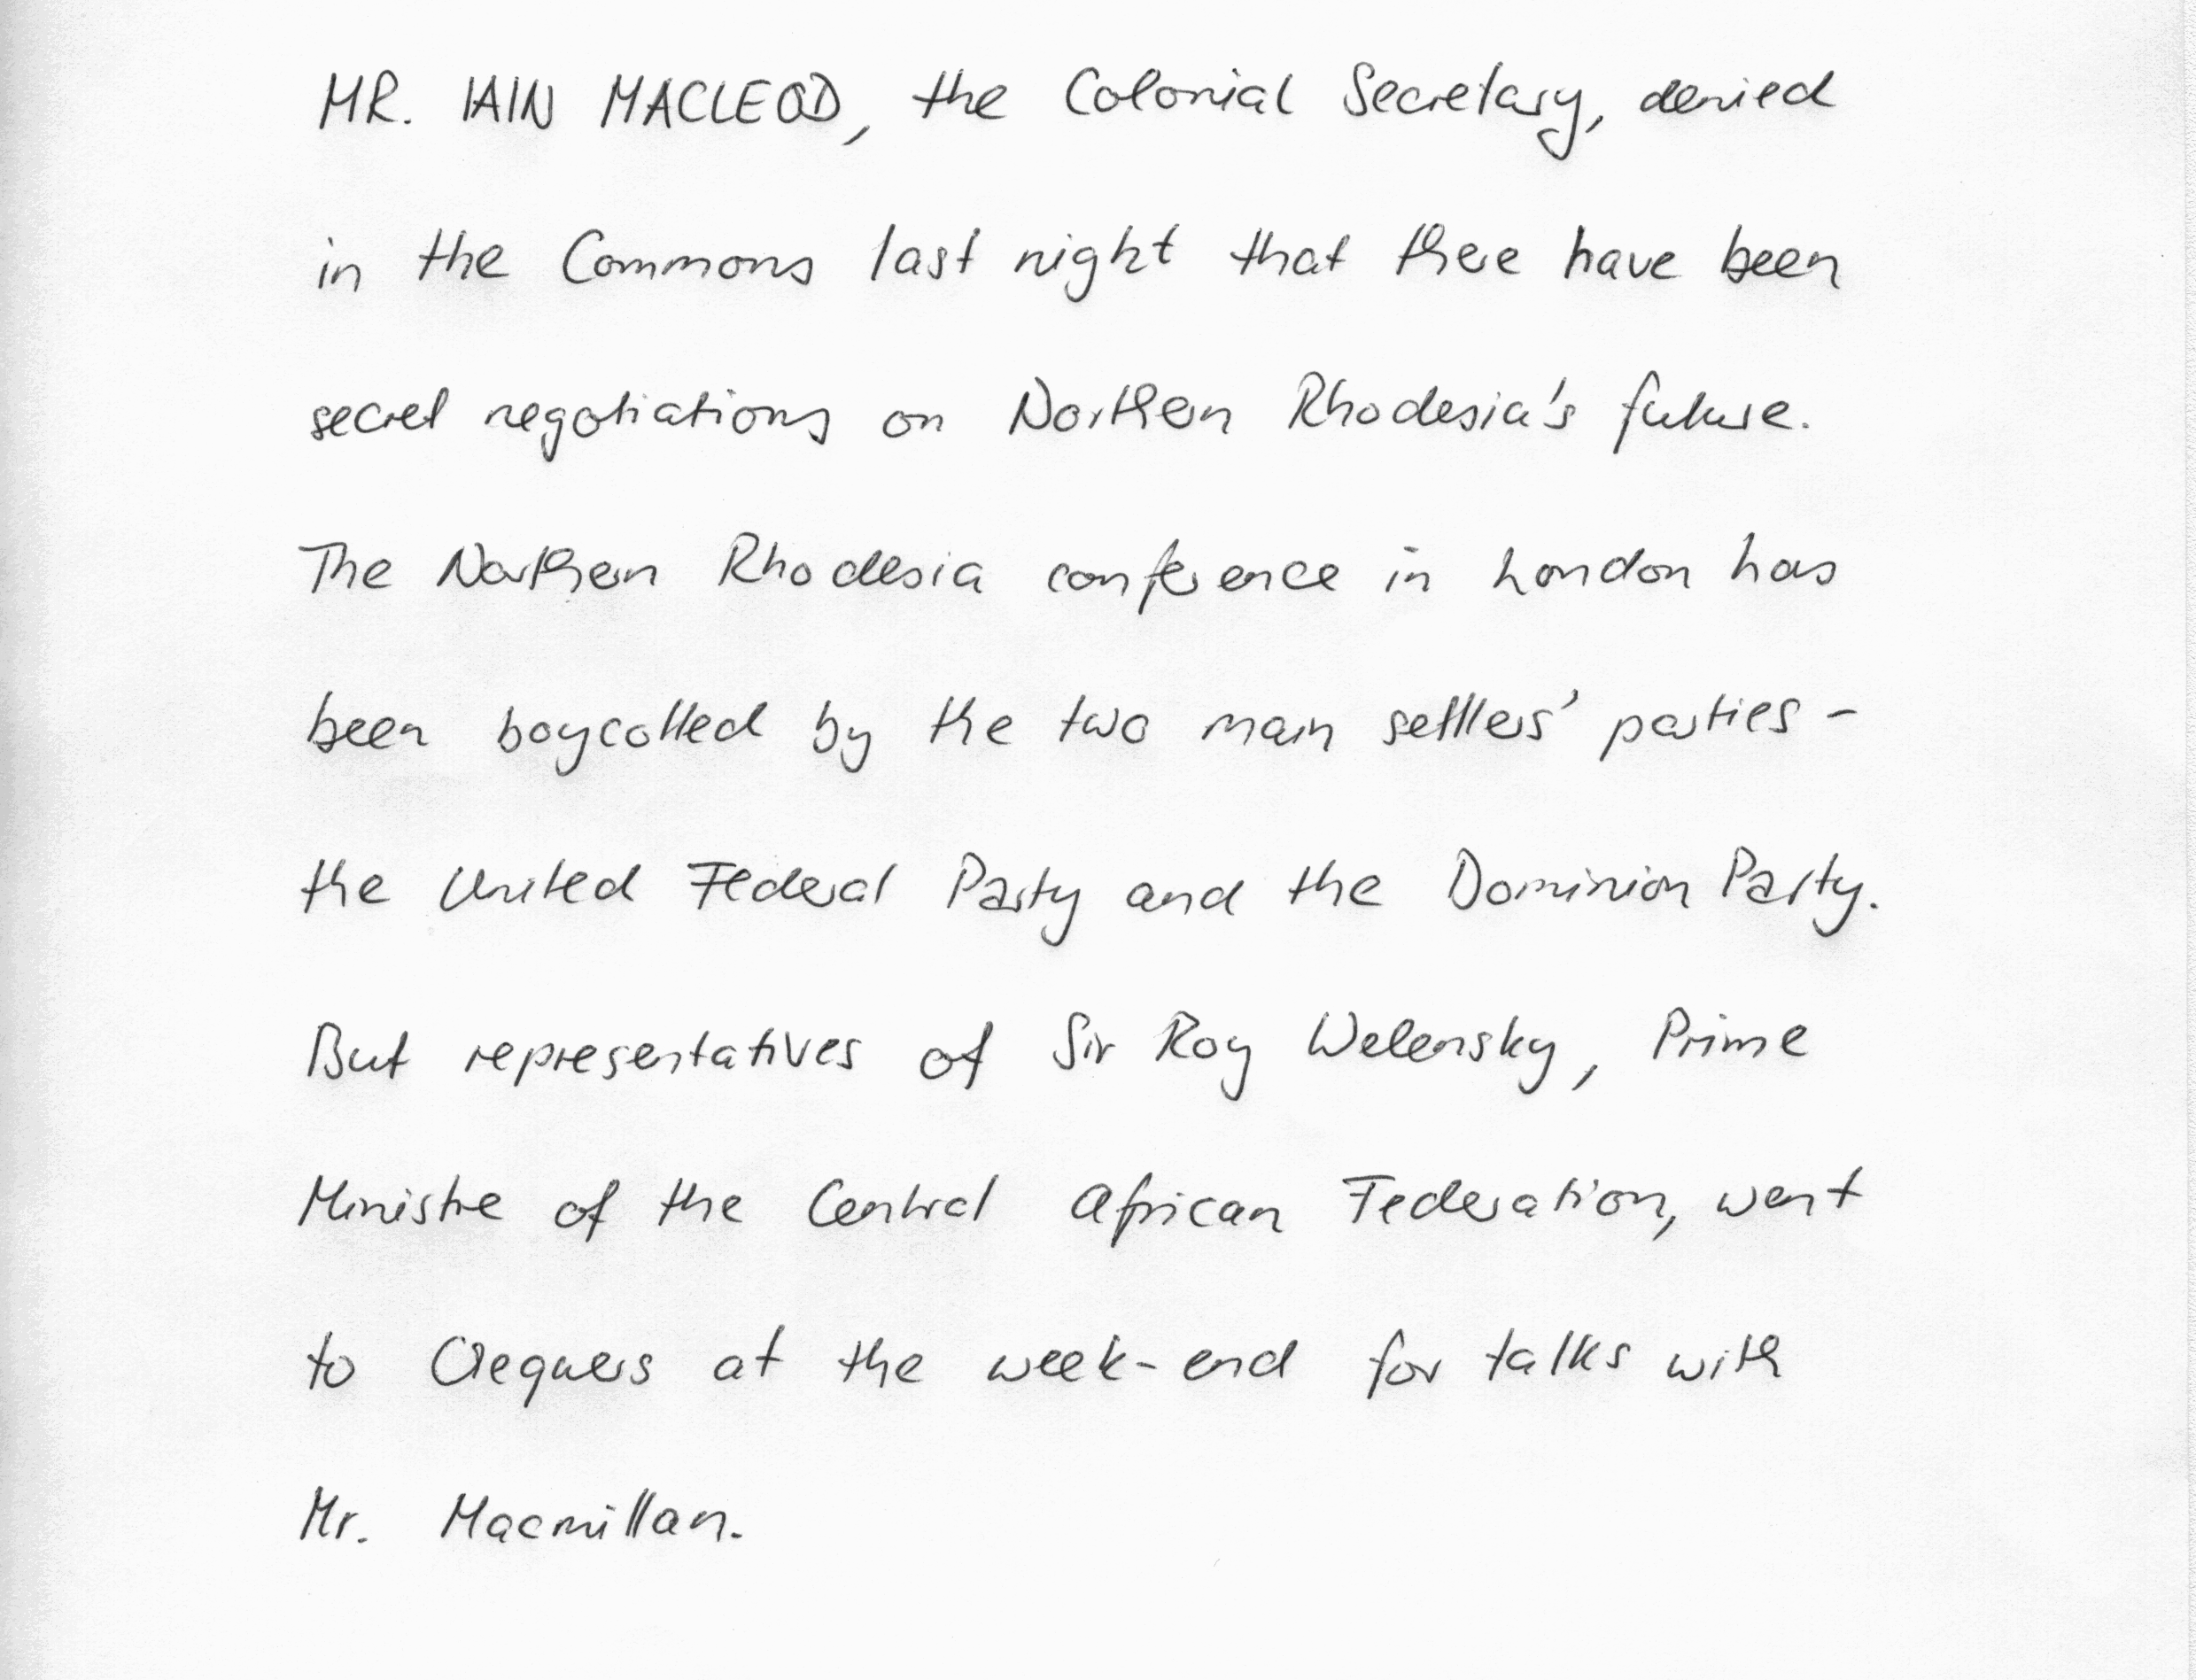 MR. IAIN MACLEOD, the Colonial Secretary, denied
in the Commons last night that there have been
secret negotiations on Northern Rhodesia's future.
The Northern Rhodesia conference in London has
been boycotted by the two main settlers' parties -
the United Federal Party and the Dominion Party.
But representatives of Sir Roy Welensky, Prime
Minister of the Central African Federation, went
to Chequers at the week-end for talks with
Mr. Macmillan.